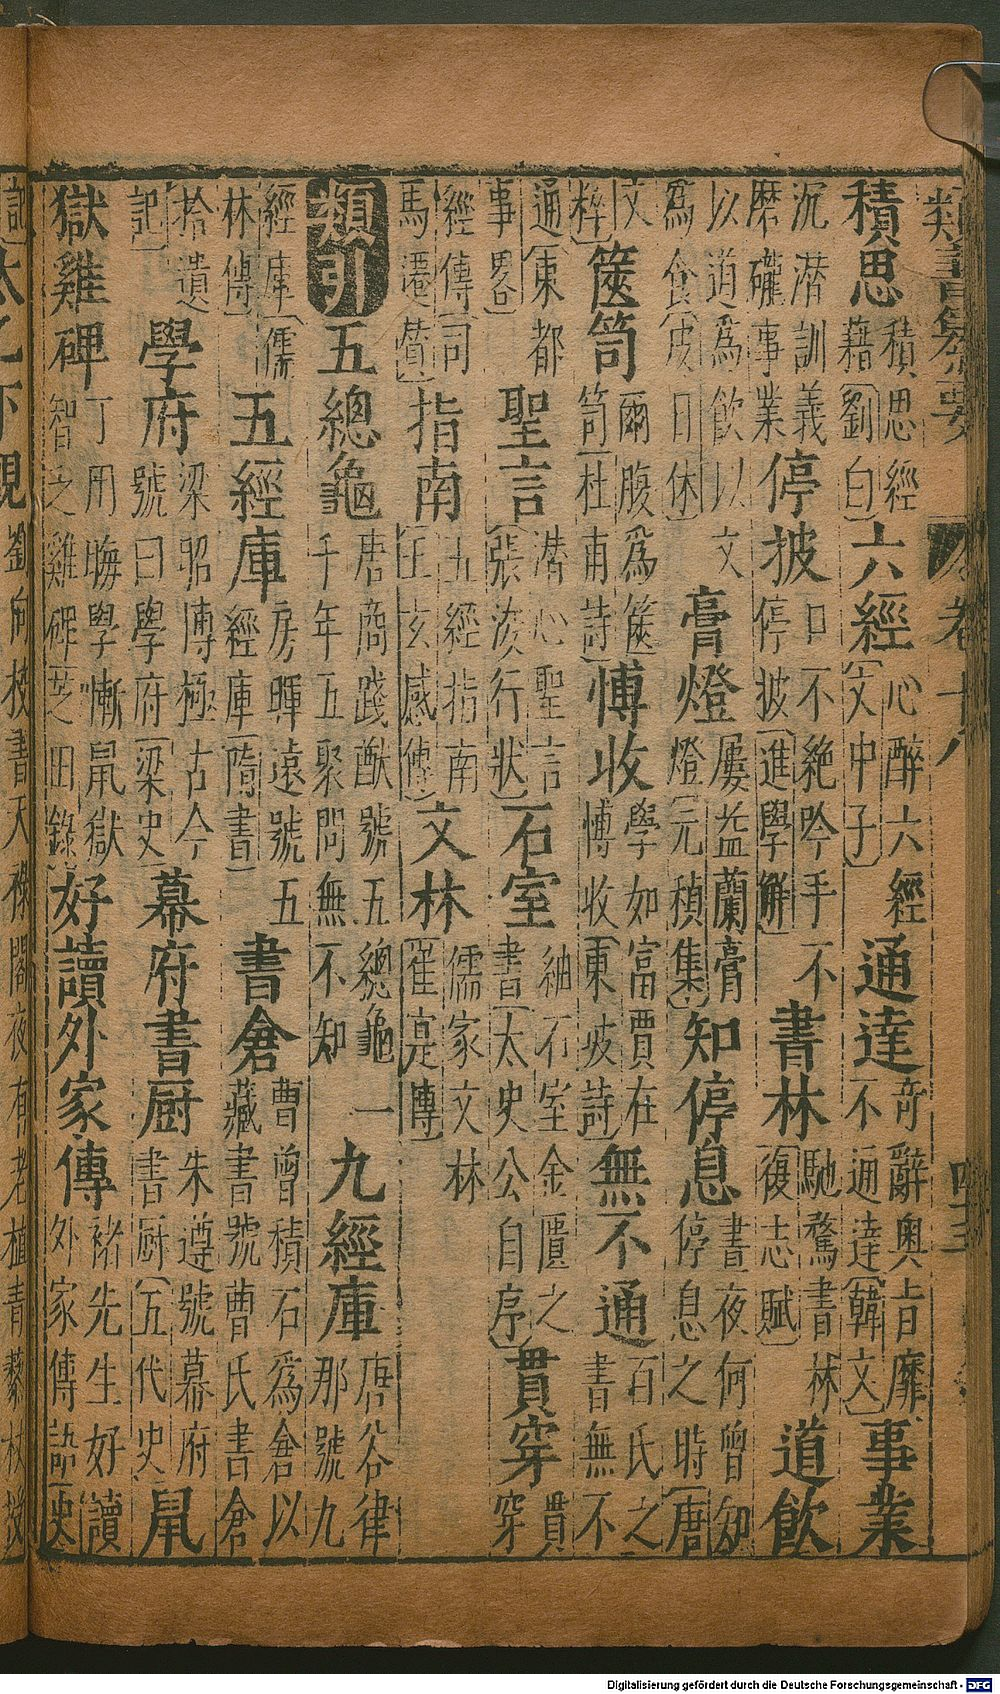 類書纂要 卷十八
積思 積思經籍〔劉白〕六經 心醉六經〔文中子〕通達 奇辭奧旨靡不通達〔韓文〕事業
沉潛訓義磨礲事業 停披 口不絕吟手不停披〔進學解〕書林 馳騖書林〔復志賦〕道飲
以道爲飲以文爲食〔皮日休〕膏燈 屢益蘭膏燈〔元稹集〕知停息 晝夜何曾知停息之時〔唐
文粹〕篋笥 爾腹爲篋笥〔杜甫詩〕博收 學如富賈在博收〔東坡詩〕無不通 百氏之書無不
通〔東都事畧〕聖言 潛心聖言〔張浚行狀〕石室 紬石室金匱之書〔太史公自序〕貫穿 貫穿
經傳〔司馬遷贊〕指南 五經指南〔王玄感傳〕文林 儒家文林〔崔亮傳〕
類引 五總龜 唐商踐猷號五總龜一千年五聚問無不知 九經庫 唐谷律那號九
經庫〔儒林傳〕五經庫 房暉遠號五經庫〔隋書〕書倉 曹曾積石爲倉以藏書號曹氏書倉
拾遺記〕學府 梁昭博極古今號曰學府〔梁史〕幕府書厨 朱遵號幕府書厨〔五代史〕鼠
獄雞碑 丁用晦學慚鼠獄智乏雞碑〔芝田錄〕好讀外家傳 褚先生好讀外家傳語〔史
記〕太乙下觀 劉向校書天祿閣夜有老植青藜杖授
Digitalisierung gefördert durch die Deutsche Forschungsgemeinschaft - DFG